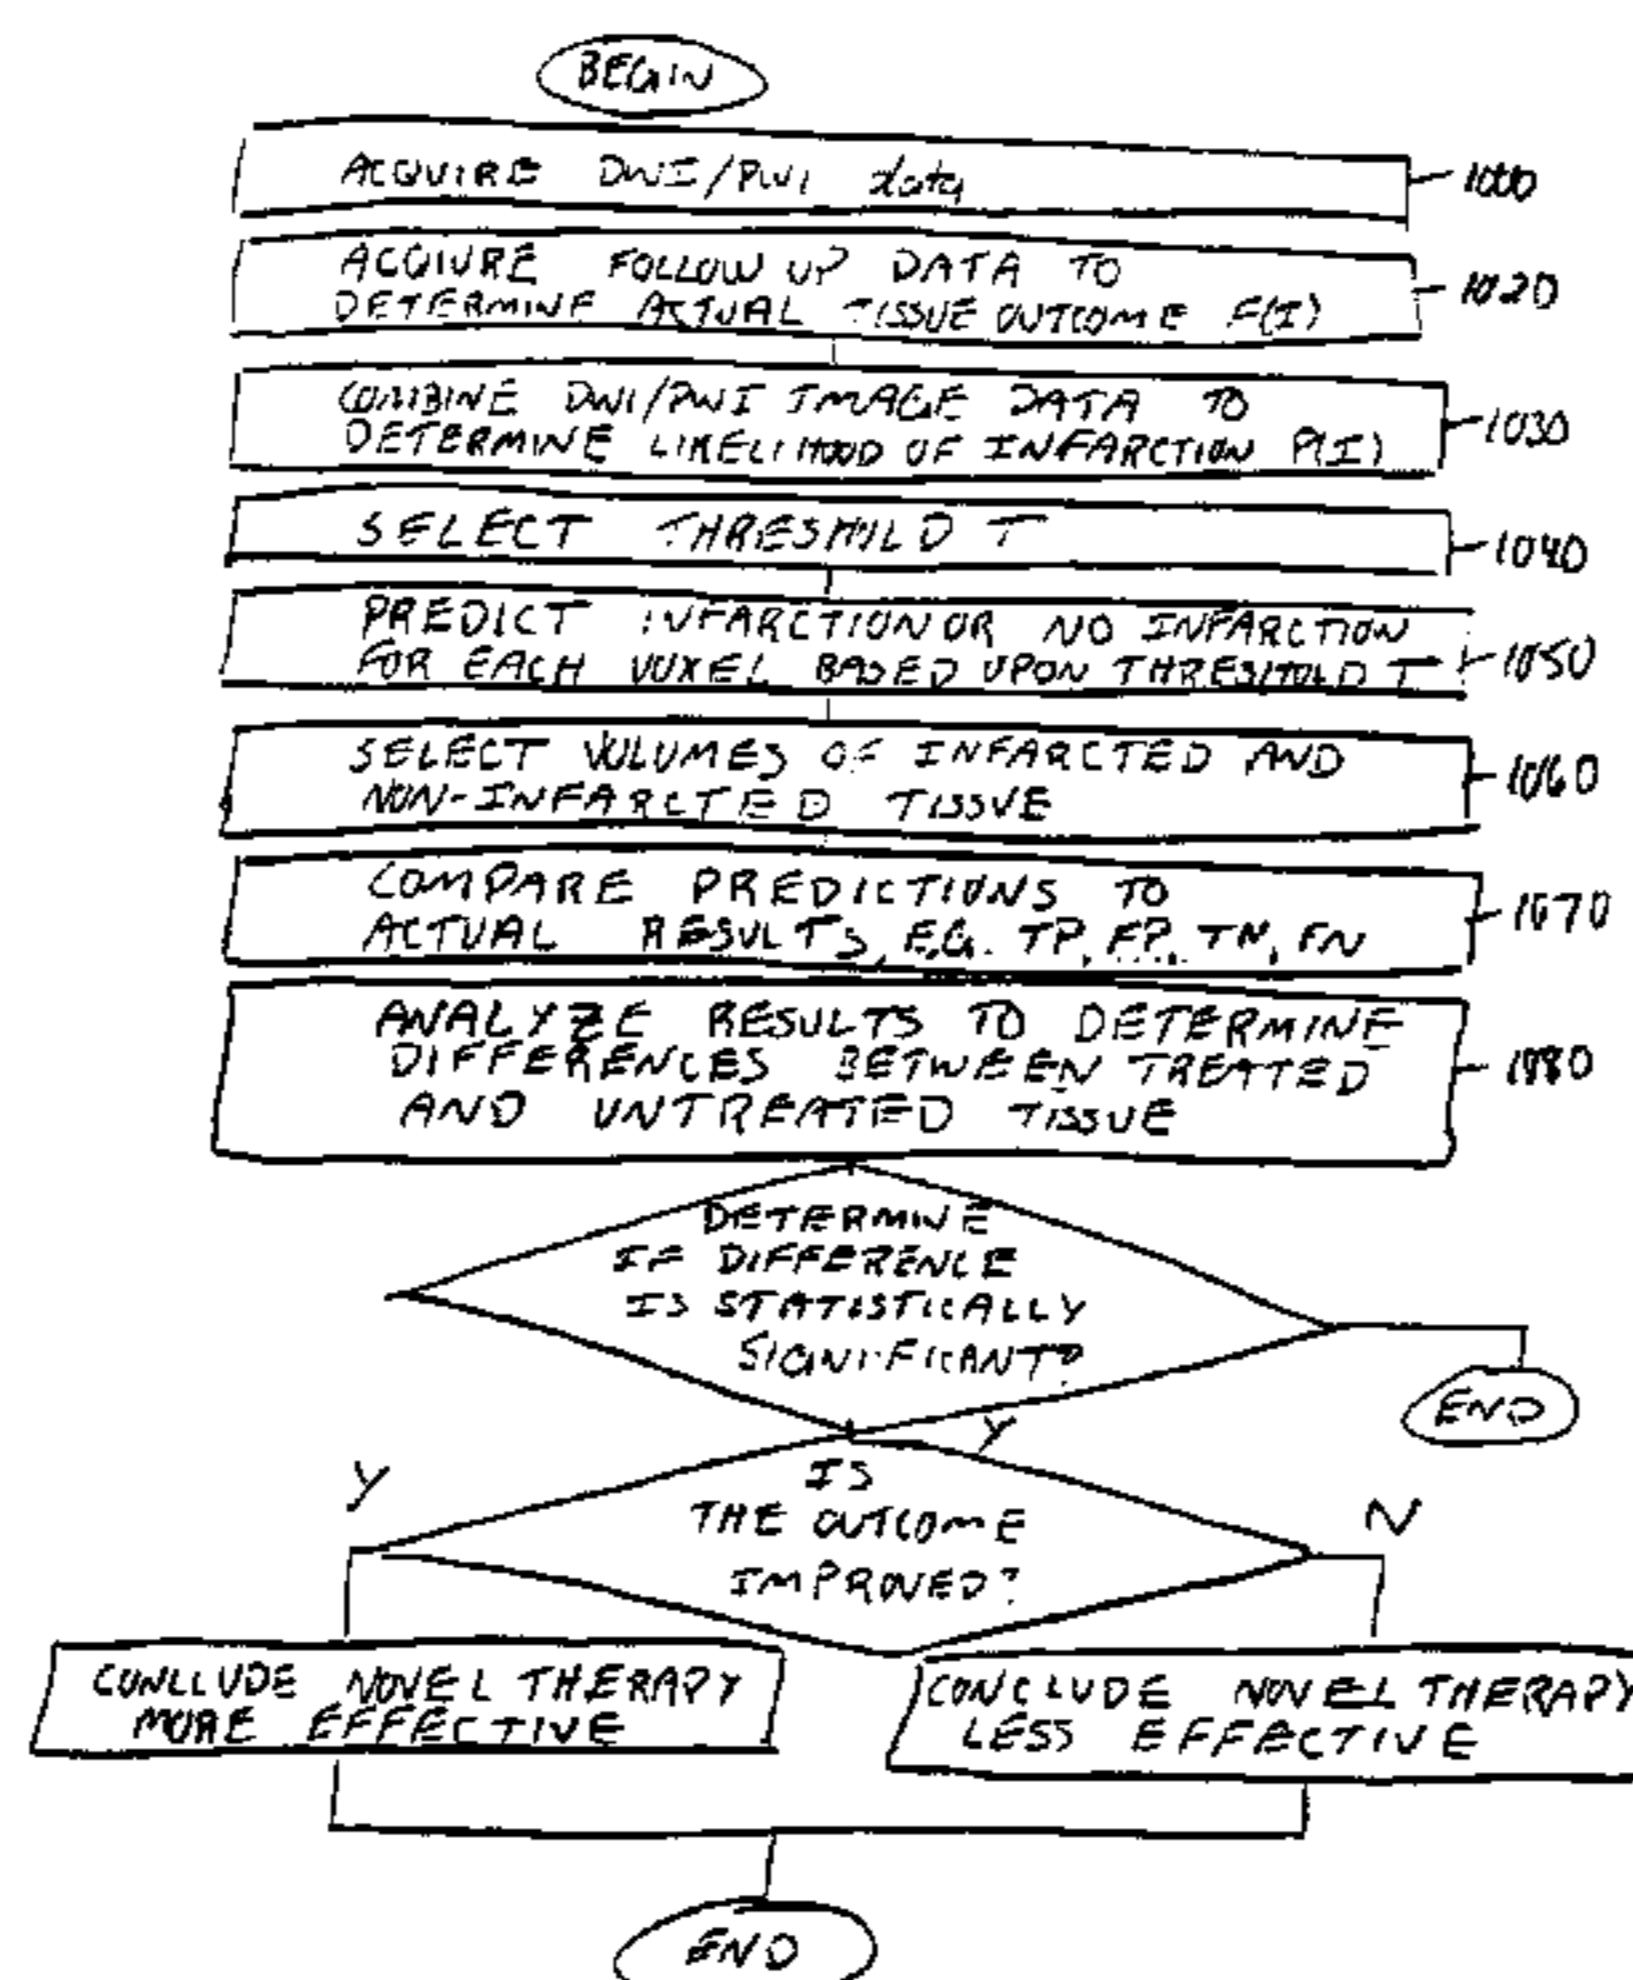 BEGIN
ACQUIRE DWI/PWI data
1000
ACQIURE FOLLOW UP DATA TO
DETERMINE ACTUAL TISSUE OUTCOME F(I)
1020
COMBINE DWI/PWI IMAGE DATA TO
DETERMINE LIKELIHOOD OF INFARCTION P(I)
1030
SELECT THRESHOLD T
1040
PREDICT INFARCTION OR NO INFARCTION
FOR EACH VOXEL BASED UPON THRESHOLD T
1050
SELECT VOLUMES OF INFARCTED AND
NON-INFARCTED TISSUE
1060
COMPARE PREDICTIONS TO
ACTUAL RESULTS, E.G. TP, FP, TN, FN
1070
ANALYZE RESULTS TO DETERMINE
DIFFERENCES BETWEEN TREATED
AND UNTREATED TISSUE
1080
DETERMINE
IF DIFFERENCE
IS STATISTICALLY
SIGNIFICANT?
END
Y
IS
THE OUTCOME
IMPROVED?
Y
N
CONCLUDE NOVEL THERAPY
MORE EFFECTIVE
CONCLUDE NOVEL THERAPY
LESS EFFECTIVE
END